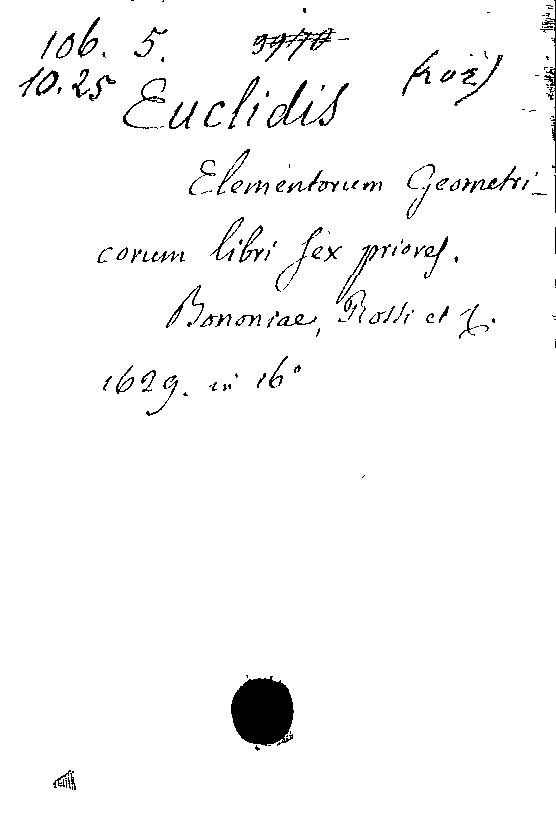 106. 5. 3970
10.25
Euclidis
Elementorum Geometri-
corum libri sex priores.
Bononiae, Rossi et
1629. in 16°